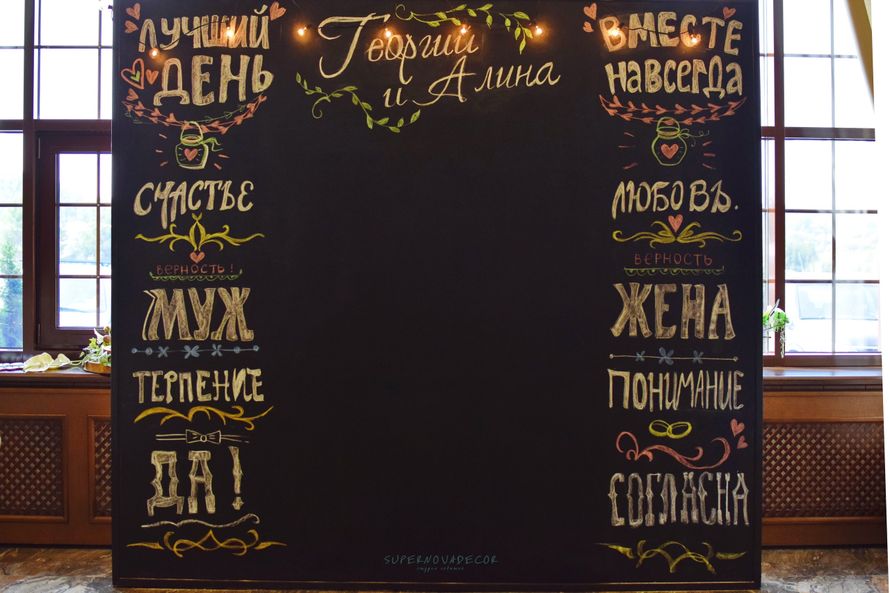 ЛУЧШИЙ
ДЕНЬ
СЧАСТЬЕ
ВЕРНОСТЬ!
МУЖ
ТЕРПЕНИЕ
ДА!
Георгий
и Алина
ВМЕСТЕ
навсегда
ЛЮБОВЪ.
ВЕРНОСТЬ
ЖЕНА
ПОНИМАНИЕ
СОГЛАСНА
SUPERNOVADECOR